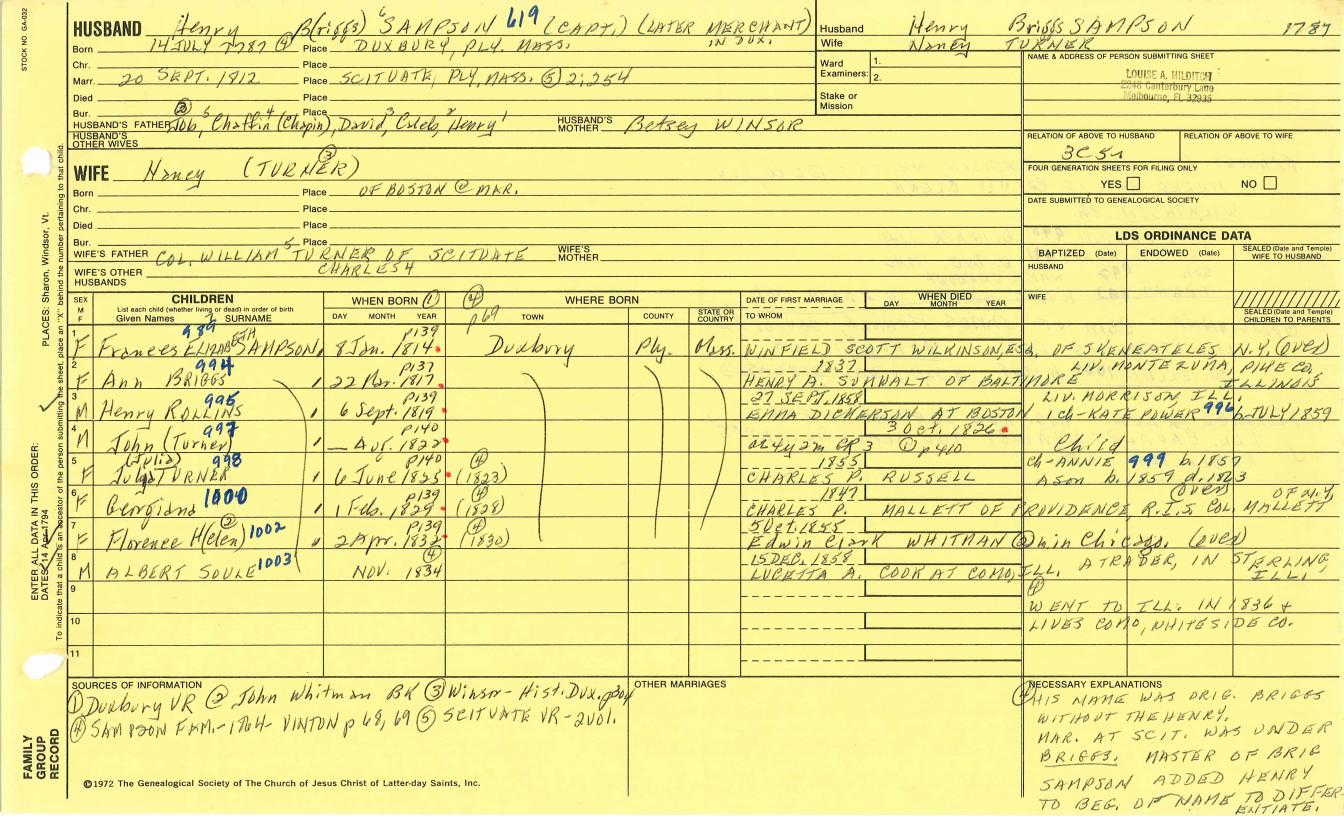 STOCK NO. GA-032
HUSBAND Henry B(riggs)6 SAMPSON 619 (CAPT.) (LATER MERCHANT) IN DUX.
Born 14 JULY 1787 ④ Place DUXBURY, PLY. MASS.
Chr. Place
Marr. 20 SEPT. 1812 Place SCITUATE, PLY, MASS. ⑤ 2:254
Died Place
Bur. Place
HUSBAND'S FATHER Job,5 Chaffin4 (Chapin), David,3 Caleb,2 Henry1 HUSBAND'S MOTHER Betsey WINSOR
HUSBAND'S OTHER WIVES
Husband Henry Briggs SAMPSON 1787
Wife Nancy TURNER
Ward Examiners: 1.
2.
Stake or Mission
NAME & ADDRESS OF PERSON SUBMITTING SHEET
LOUISE A. HILDITCH
2248 Canterbury Lane
Melbourne, FL 32935
RELATION OF ABOVE TO HUSBAND RELATION OF ABOVE TO WIFE
3C5r
FOUR GENERATION SHEETS FOR FILING ONLY
YES NO
DATE SUBMITTED TO GENEALOGICAL SOCIETY
WIFE Nancy (TURNER) ③
Born Place OF BOSTON @ MAR.
Chr. Place
Died Place
Bur. Place
WIFE'S FATHER COL. WILLIAM5 TURNER OF SCITUATE WIFE'S MOTHER
CHARLES4
WIFE'S OTHER HUSBANDS
LDS ORDINANCE DATA
BAPTIZED (Date) ENDOWED (Date) SEALED (Date and Temple) WIFE TO HUSBAND
HUSBAND
WIFE
SEALED (Date and Temple) CHILDREN TO PARENTS
SEX M F CHILDREN List each child (whether living or dead) in order of birth Given Names SURNAME WHEN BORN ① DAY MONTH YEAR ④ p 69 WHERE BORN TOWN COUNTY STATE OR COUNTRY DATE OF FIRST MARRIAGE TO WHOM WHEN DIED DAY MONTH YEAR
1 F 989 Frances ELIZABETH SAMPSON 8 Jan. 1814 p139 Duxbury Ply. Mass. WINFIELD SCOTT WILKINSON, ESQ. OF SKENEATELES N.Y. (OVER)
2 F 994 Ann BRIGGS 22 Mar. 1817 p137 1837 HENRY A. SUMWALT OF BALTIMORE LIV. MONTEZUMA, PIKE CO. ILLINOIS
3 M 995 Henry ROLLINS 6 Sept. 1819 p139 27 SEPT. 1858 EMMA DICKERSON AT BOSTON LIV. MORRISON ILL. 1 ch-KATE POWER 996 b. JULY 1859
4 M 997 John (Turner) — Aug. 1822 p140 3 Oct. 1826 at 4y 2m CR 3 ① p 410 Child
5 F (Julia) 998 TURNER 6 June 1825 p140 ④ (1823) 1855 CHARLES P. RUSSELL ch-ANNIE 999 b. 1857 A son b. 1859 d. 1863 (over)
6 F Georgiana 1000 1 Feb. 1829 p139 ④ (1828) 1847 CHARLES P. MALLETT OF PROVIDENCE, R.I. S COL. MALLETT OF N.Y
7 F Florence H(elen) ② 1002 2 Apr. 1832 p139 ④ (1830) 5 Oct. 1855 Edwin Clark WHITMAN ② in Chicago. (over)
8 M ALBERT SOULE 1003 NOV. 1834 ④ 15 DEC. 1858 LUCETTA A. COOK AT COMO, ILL. A TRADER, IN STERLING, ILL.
9 ④ WENT TO ILL. IN 1836 +
10 LIVES COMO, WHITESIDE CO.
11
SOURCES OF INFORMATION
① Duxbury VR ② John Whitman BK ③ Winsor-Hist. Dux. p304
④ SAMPSON FAM.-1864- VINTON p 68, 69 ⑤ SCITUATE VR-2vol.
OTHER MARRIAGES
NECESSARY EXPLANATIONS
④ HIS NAME WAS ORIG. BRIGGS
WITHOUT THE HENRY.
MAR. AT SCIT. WAS UNDER
BRIGGS. MASTER OF BRIG
SAMPSON ADDED HENRY
TO BEG. OF NAME TO DIFFERENTIATE.
©1972 The Genealogical Society of The Church of Jesus Christ of Latter-day Saints, Inc.
FAMILY GROUP RECORD
ENTER ALL DATA IN THIS ORDER:
DATES: 14 Apr 1794
PLACES: Sharon, Windsor, Vt.
To indicate that a child is an ancestor of the person submitting the sheet, place an "X" behind the number pertaining to that child.